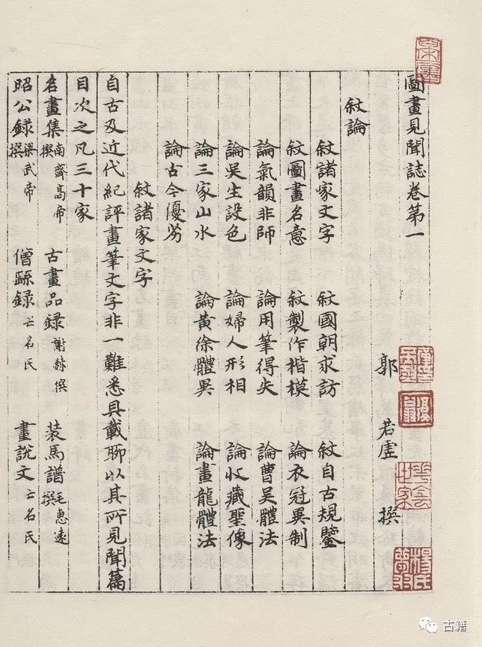 圖畫見聞誌卷第一
郭 若虛 撰
敘論
敘諸家文字 敘國朝求訪 敘自古規鑒
敘圖畫名意 敘製作楷模 論衣冠異制
論氣韻非師 論用筆得失 論曹吳體法
論吳生設色 論婦人形相 論收藏聖像
論三家山水 論黃徐體異 論畫龍體法
論古今優劣
敘諸家文字
自古及近代紀評畫筆文字非一難悉具載聊以其所見聞篇
目次之凡三十家
名畫集南齊高帝撰 古畫品録謝赫撰 裝馬譜毛惠遠撰
昭公録梁武帝撰 僧繇録亡名氏 畫說文亡名氏
古籍